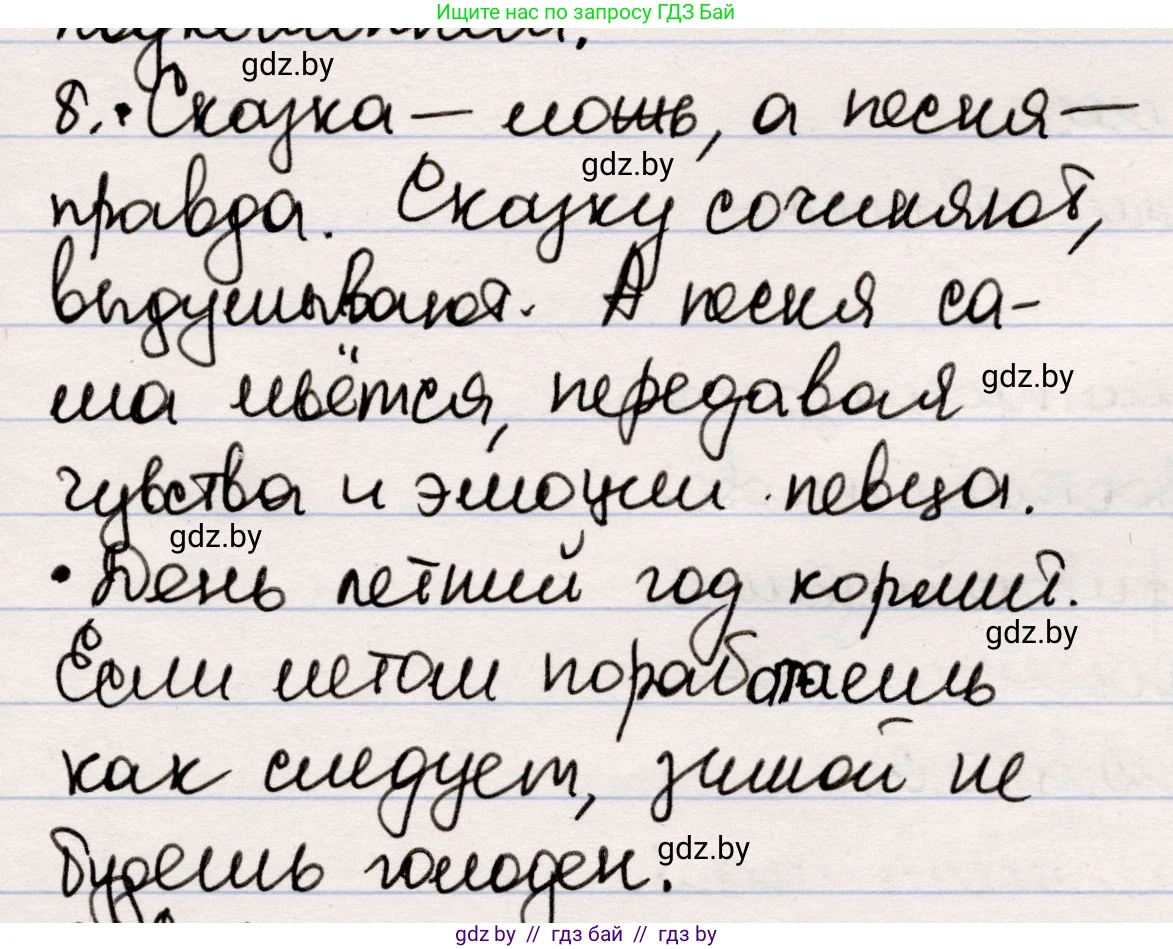 Ищите нас по запросу ГДЗ Бай
gdz.by
8. • Сказка — ложь, а песня —
gdz.by
правда. Сказку сочиняют,
выдумывают. А песня са-
ма льётся, передавая
gdz.by
чувства и эмоции певца.
gdz.by
• День летний год кормит.
gdz.by
Если летом поработаешь
как следует, зимой не
будешь голоден.
gdz.by
gdz.by // гдз бай // гдз by